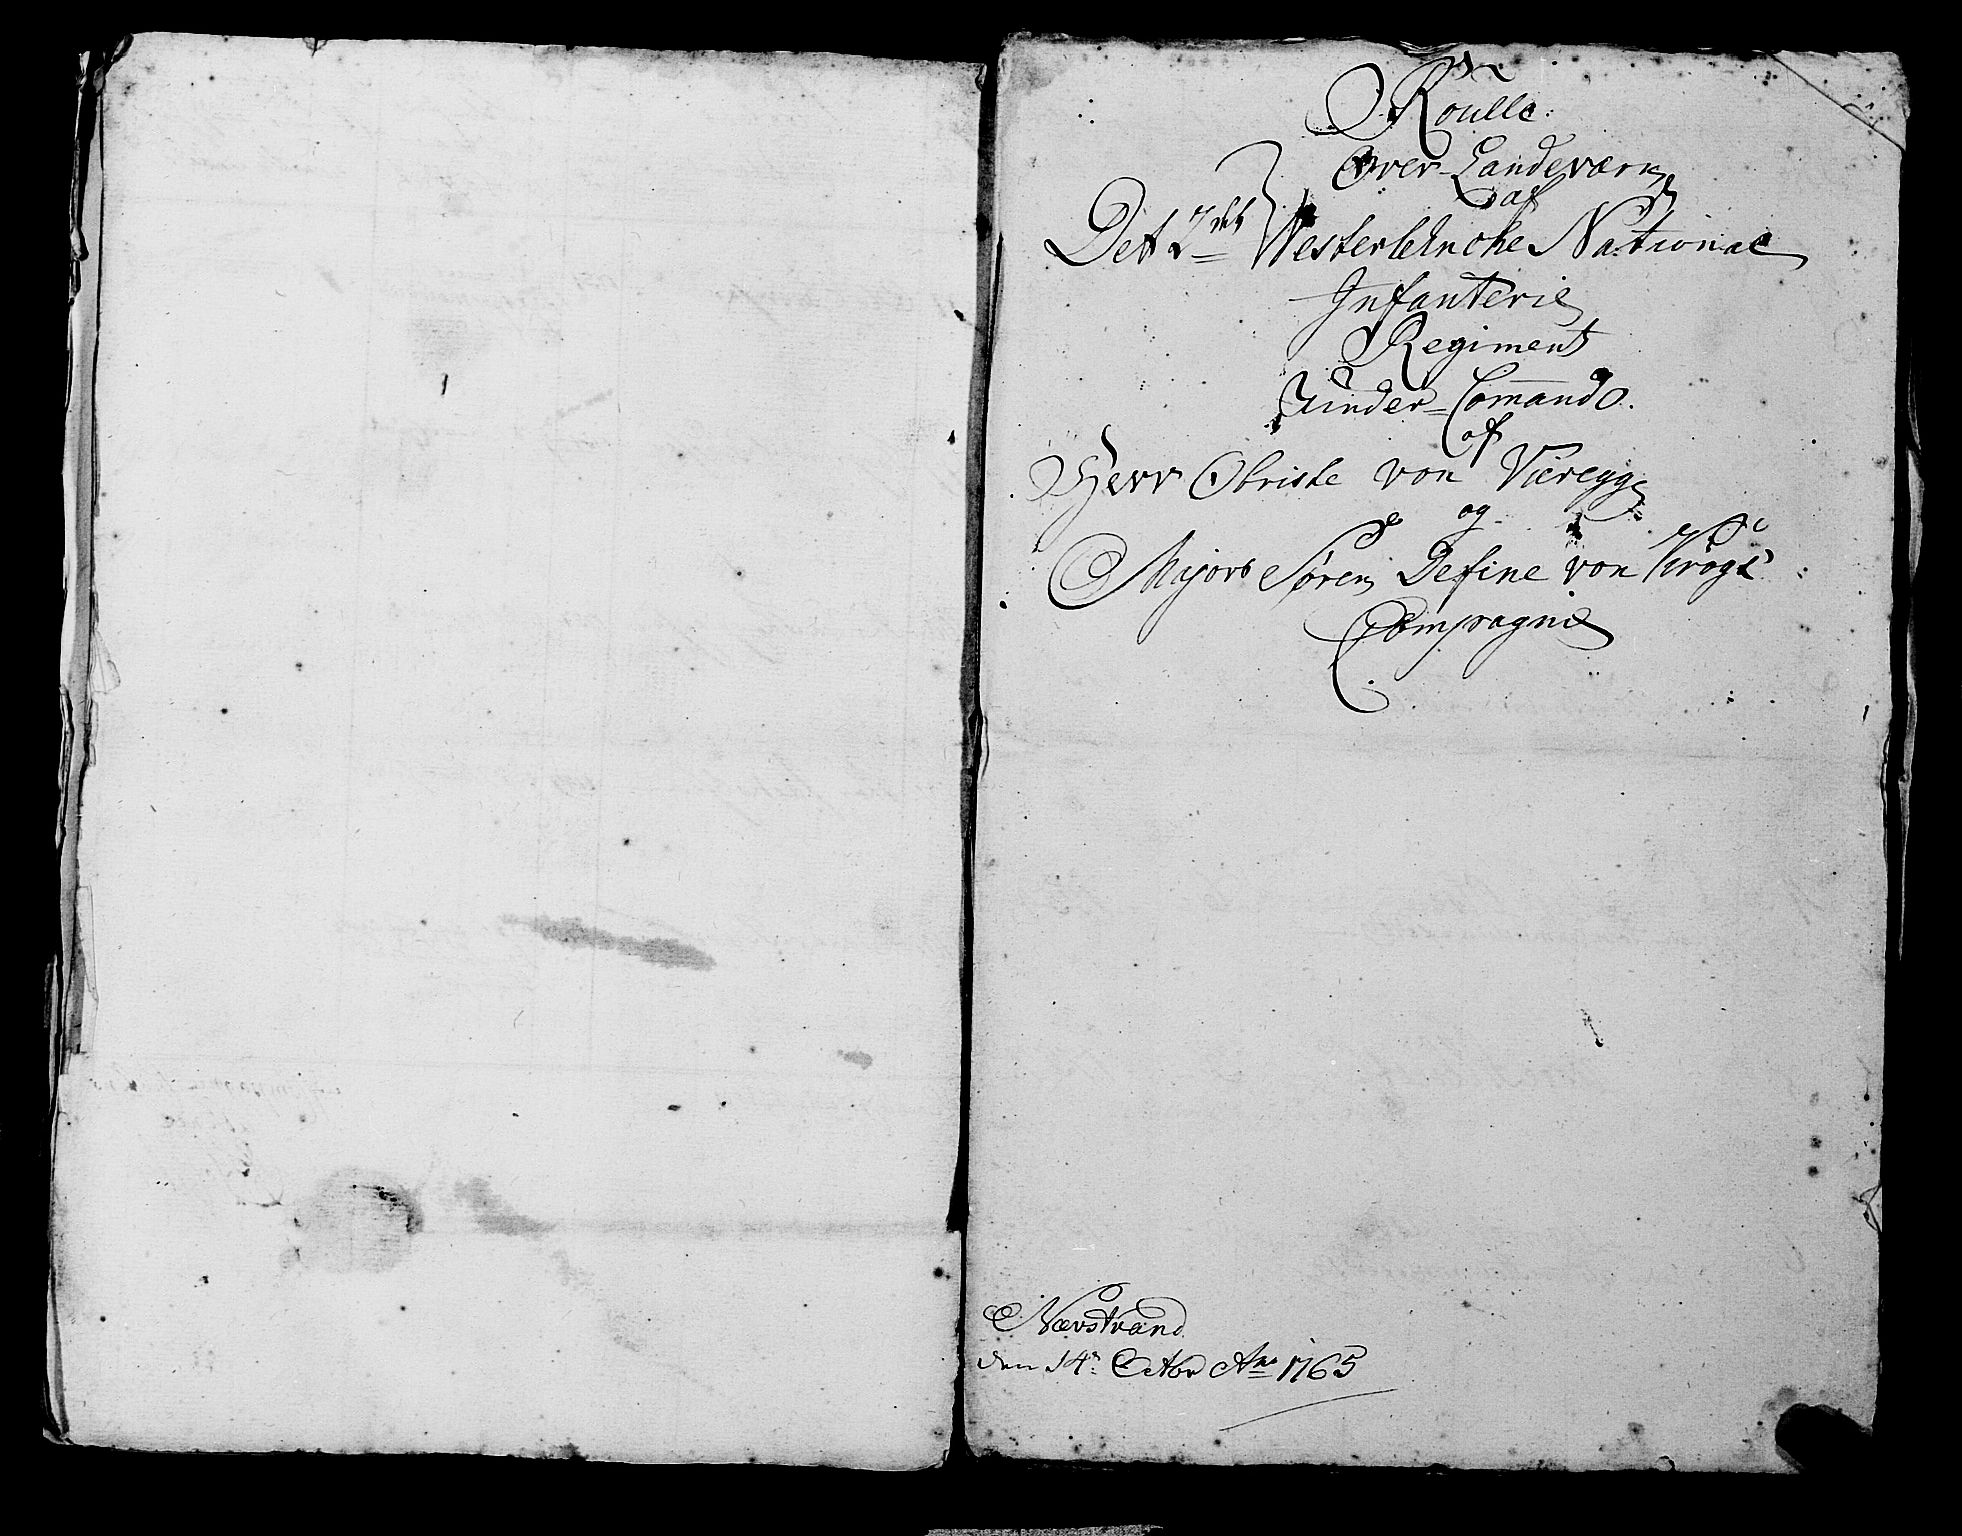 Roulle.
Over Landeværn
af
Det 2det Westerlehnske National
Infanterie
Regiment
Under-Comando.
af
Herr Obriste von Væregge
og
Majors Søren Define von Krogs
Compagnie
Nærstrand
den 14n Octbr Ano 1765